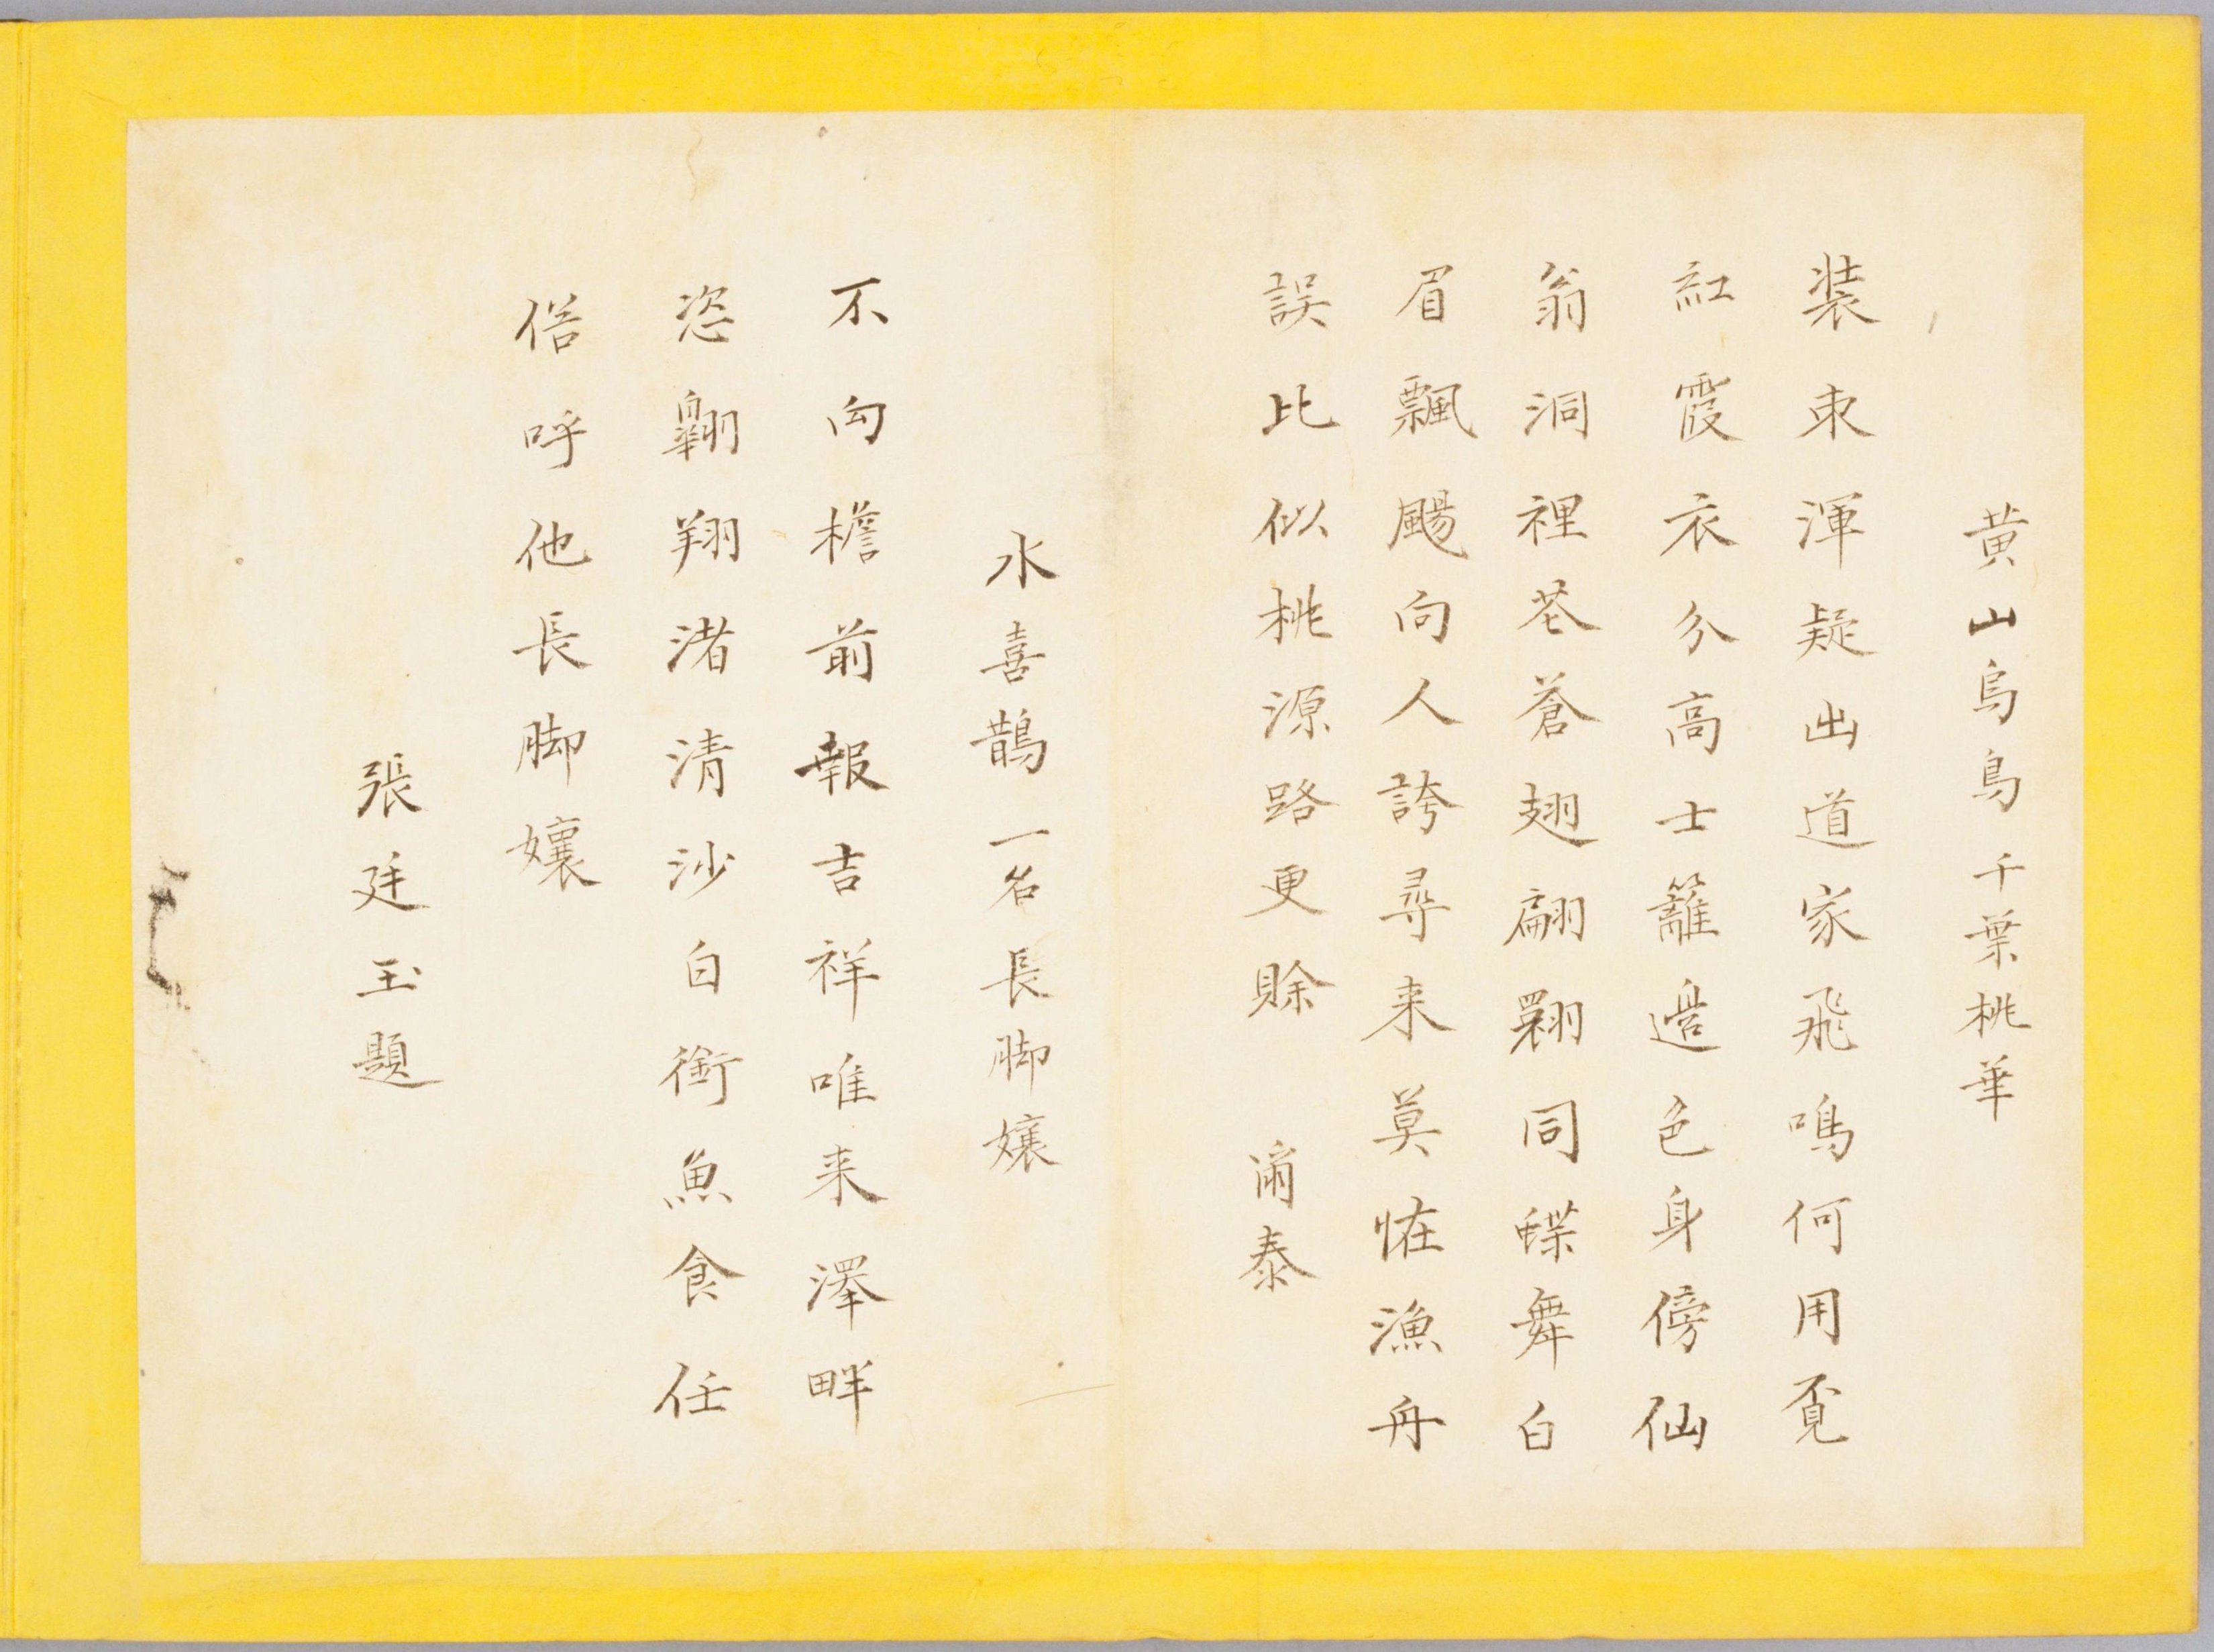 黄山烏鳥 千葉桃華
裝束渾疑出道家飛鳴何用覓
紅霞衣分高士籬邉色身傍仙
翁洞裡花蒼翅翩翾同蝶舞白
眉飄颺向人誇尋来莫恠漁舟
誤比似桃源路更賒 爾泰
水喜鵲 一名長脚孃
不向檐前報吉祥唯来澤畔
恣翱翔渚清沙白銜魚食任
俗呼他長脚孃
張廷玉題